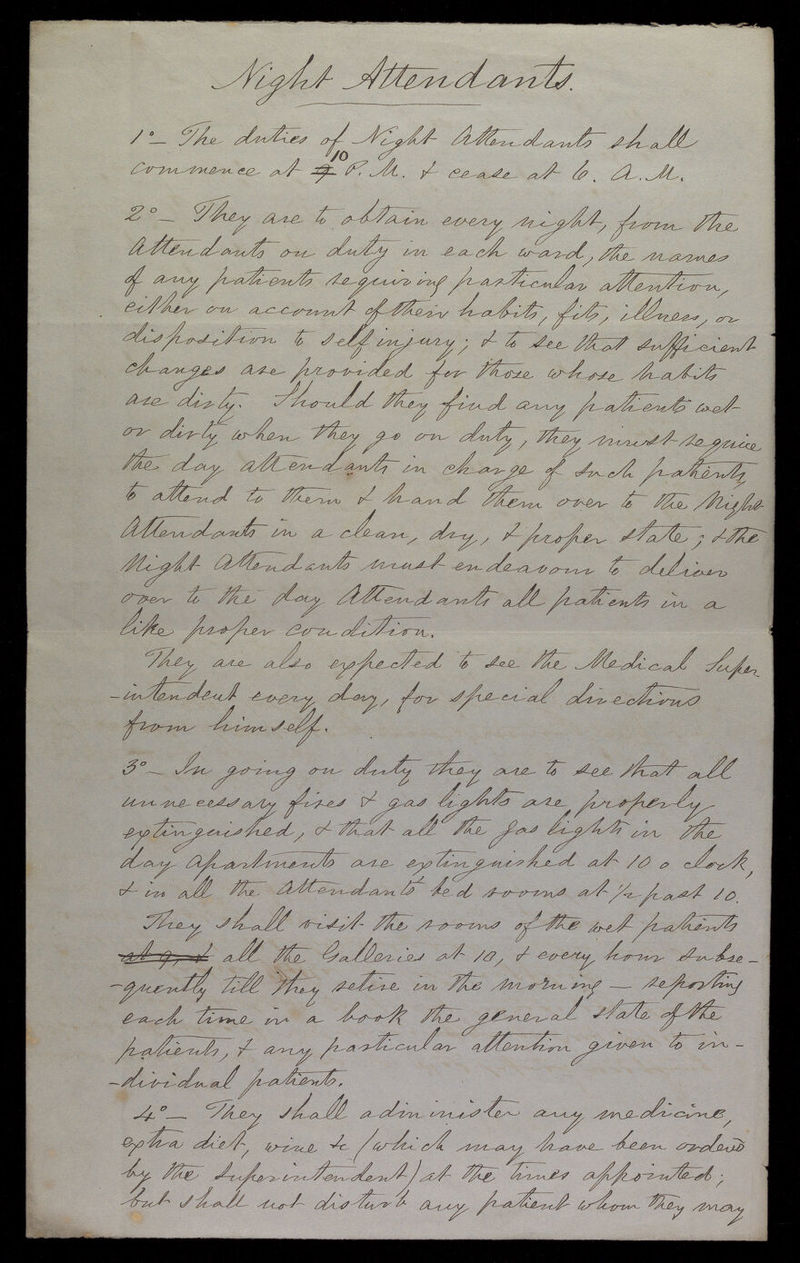 Night Attendants.
1° — The duties of Night Attendants shall
10
commence at 9 P. M. & cease at 6. A. M.
2° — They are to obtain every night, from the
Attendants on duty in each ward, the names
of any patients requiring particular attention,
either on account of their habits, fits, illness, or
disposition to self injury; & to see that sufficient
changes are provided for those whose habits
are dirty. Should they find any patients wet
or dirty when they go on duty, they must require
the day attendants in charge of such patients,
to attend to them & hand them over to the Night
Attendants in a clean, dry, & proper state; & the
Night Attendants must endeavour to deliver
over to the day Attendants all patients in a
like proper condition.
They are also expected to see the Medical Super-
-intendent every day, for special directions
from himself.
3° — In going on duty they are to see that all
unnecessary fires & gas lights are properly
extinguished, & that all the gas lights in the
day apartments are extinguished at 10 o clock,
& in all the Attendants' bed rooms at ½ past 10.
They shall visit the rooms of the wet patients
at 9, & all the Galleries at 10, & every hour subse-
-quently till they retire in the morning — reporting
each time in a book the general state of the
patients, & any particular attention given to in-
-dividual patients.
4° — They shall administer any medicine,
extra diet, wine &c (which may have been ordered
by the Superintendent) at the times appointed;
but shall not disturb any patient whom they may